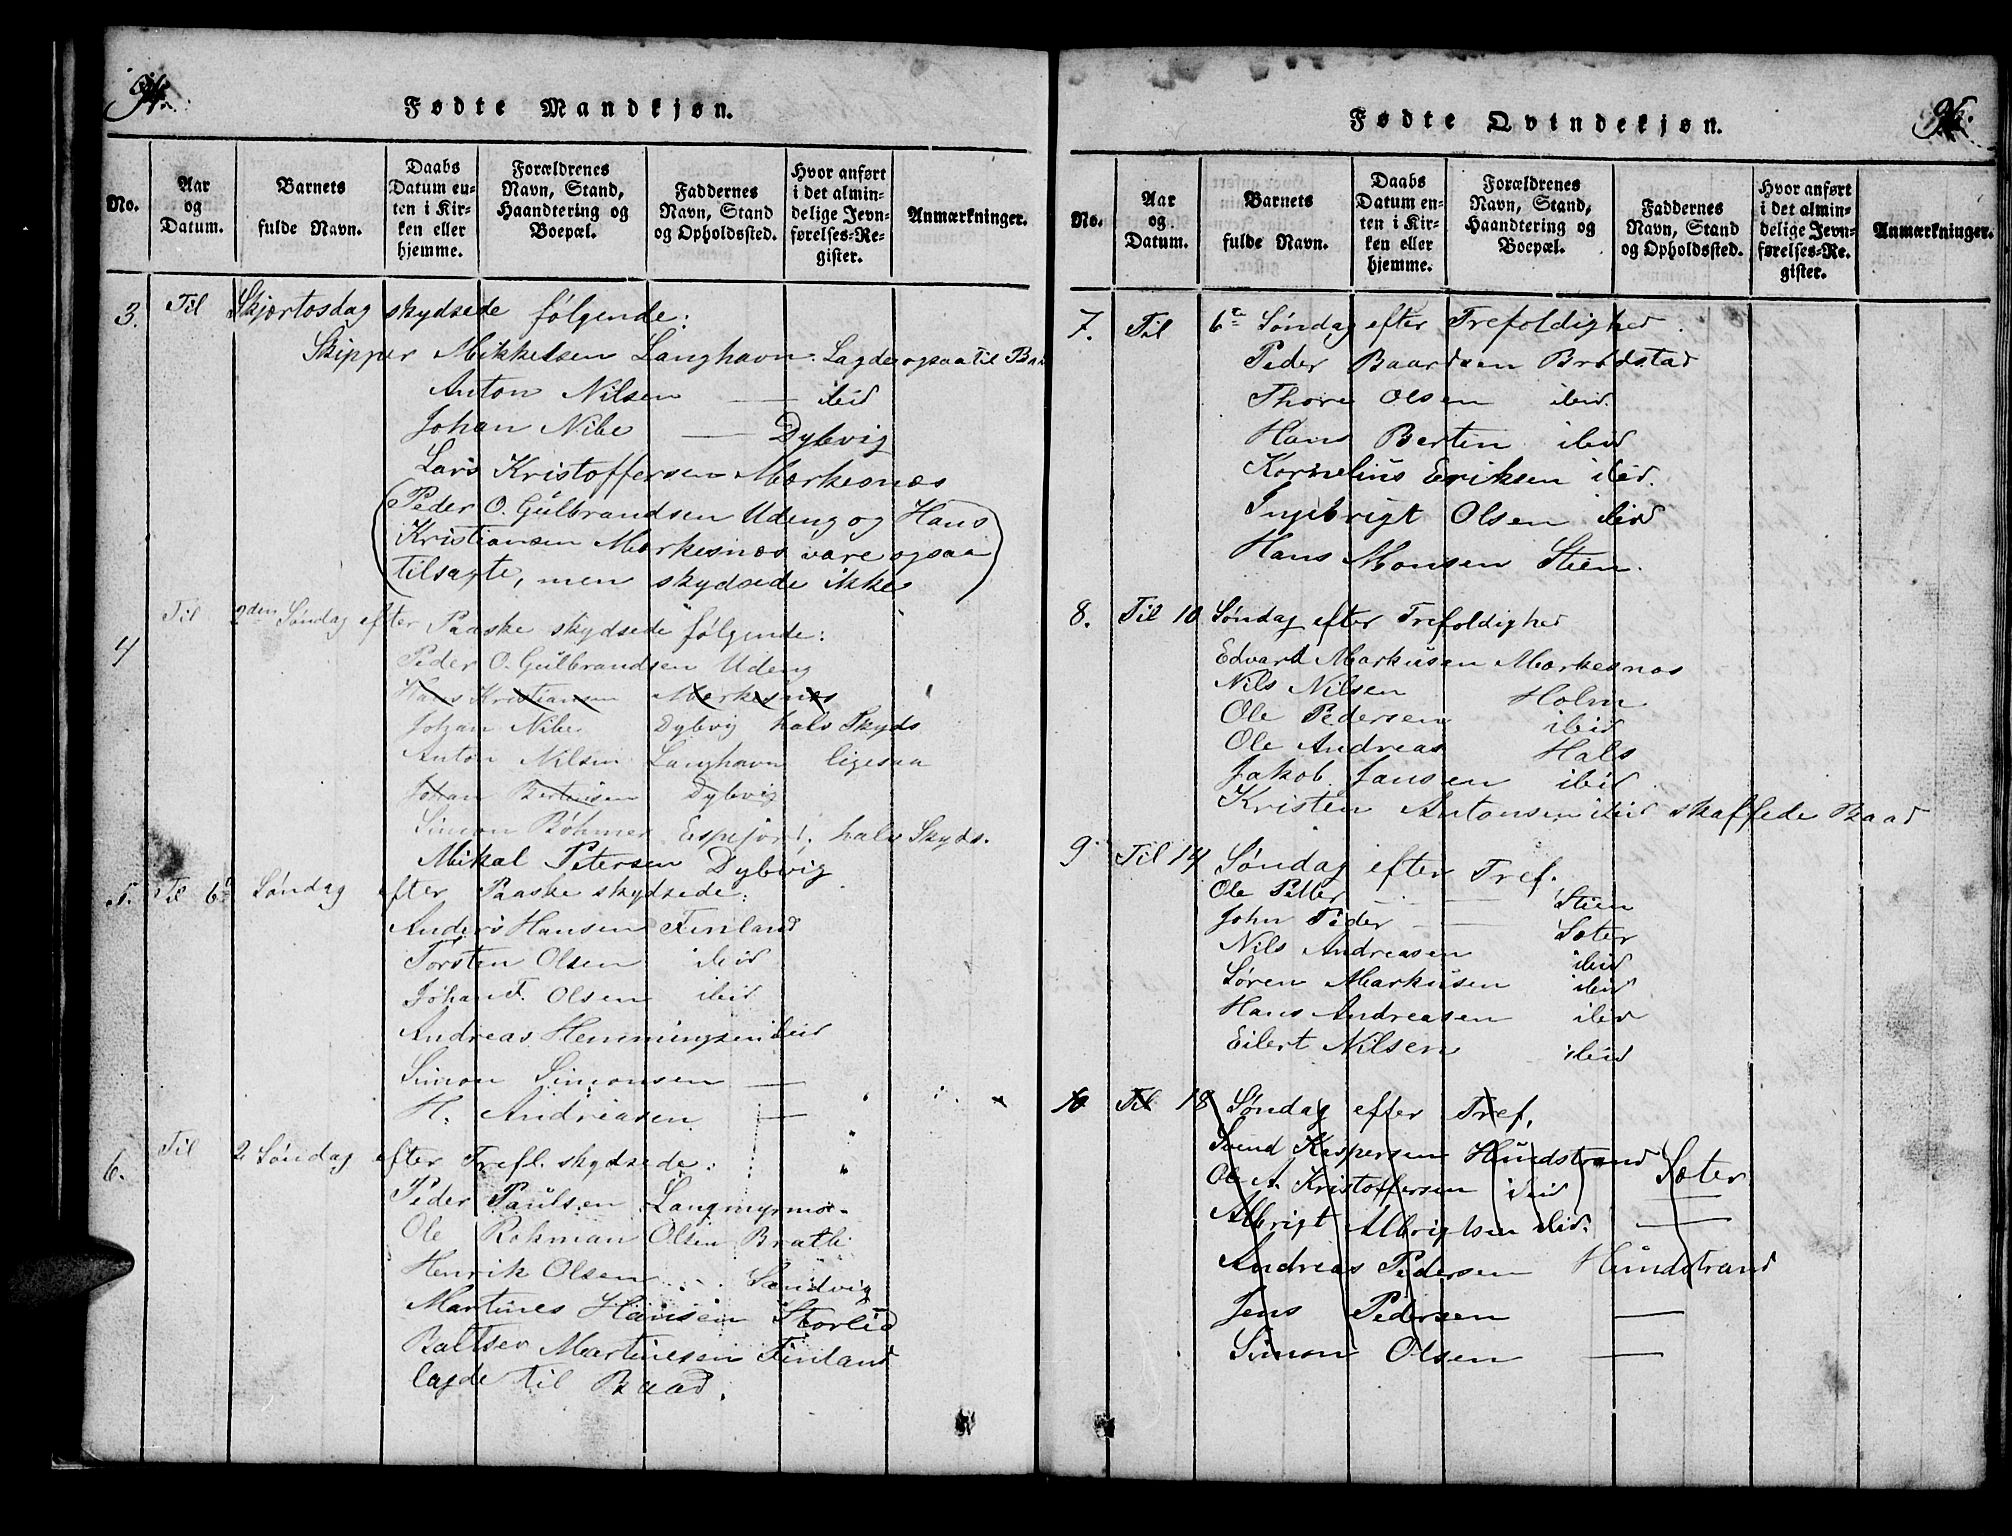 Fødte Mandkjøn.
No.
Aar og Datum.
Barnets fulde Navn.
Daabs Datum enten i Kirken eller hjemme.
Forældrenes Navn, Stand, Haandtering og Boepæl.
Faddernes Navn, Stand og Opholdssted.
Hvor anført i det almindelige Jevnførelses-Register.
Anmærkninger.
3. Til Skjærtosdag skydsede følgende:
Skipper Mikkelsen Langhavn. Lagde ogsaa til Baad
Anton Nilsen — ibid
Johan Nibe — Dybvig
Lars Kristoffersen Mærkesnæs
(Peder O. Gulbrandsen Udeng og Hans
Kristiansen Mærkesnæs vare ogsaa
tilsagte, men skydsede ikke)
4 Til 2den Søndag efter Paaske skydsede følgende:
Peder O. Gulbrandsen Udeng
Hans Kristiansen Mærkesnæs
Johan Nibe Dybvig halv Skyds
Anton Nilsen Langhavn ligesaa
Johan Berteusen Dybvig
Simon Bøhmer Espejord, halv Skyds.
Mikal Petersen Dybvig
5. Til 6te Søndag efter Paaske skydsede:
Anders Hansen Finland
Torsten Olsen ibid
Johan F. Olsen ibid
Andreas Hemmingsen ibid
Simon Simonsen —
H. Andreasen —
6. Til 2 Søndag efter Trefl. skydsede:
Peder Paulsen Langmyrmo
Ole Rohman Olsen Bratli
Henrik Olsen Sandvig
Martines Hansen Storlid
Baltser Martinesen Finland
lagde til Baad.
Fødte Qvindekjøn.
No.
Aar og Datum.
Barnets fulde Navn.
Daabs Datum enten i Kirken eller hjemme.
Forældrenes Navn, Stand, Haandtering og Boepæl.
Faddernes Navn, Stand og Opholdssted.
Hvor anført i det almindelige Jevnførelses-Register.
Anmærkninger.
7. Til 6te Søndag efter Trefoldighed
Peder Baardsen Brødstad
Thore Olsen ibid.
Hans Bertin ibid
Kornelius Eriksen ibid.
Ingebrigt Olsen ibid
Hans Monsen Stien.
8. Til 10 Søndag efter Trefoldighed
Edvard Markusen Mærkesnæs
Nils Nilsen Holm
Ole Pedersen ibid
Ole Andreas Hals
Jakob Jansen ibid
Kristen Antonsen ibid skaffede Baad
9. Til 14 Søndag efter Tref.
Ole Petter — Stien
John Peder — Sæter
Nils Andreasen ibid
Søren Markusen ibid
Hans Andreasen ibid
Eilert Nilsen ibid
10 Til 18 Søndag efter Tref.
Svend Kaspersen Hundstrand Sæter
Ole A. Kristoffersen ibid —
Albrigt Albrigtsen ibid. —
Andreas Pedersen Hundstrand
Jens Pedersen —
Simon Olsen —